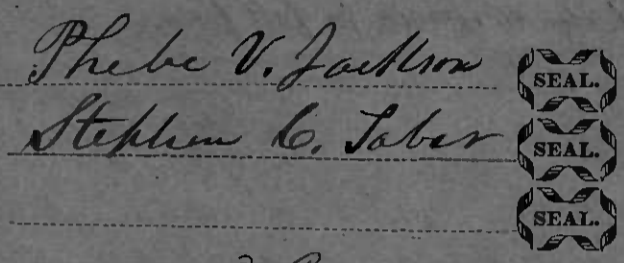 Phebe V. Jackson SEAL.
Stephen C. Taber SEAL.
SEAL.